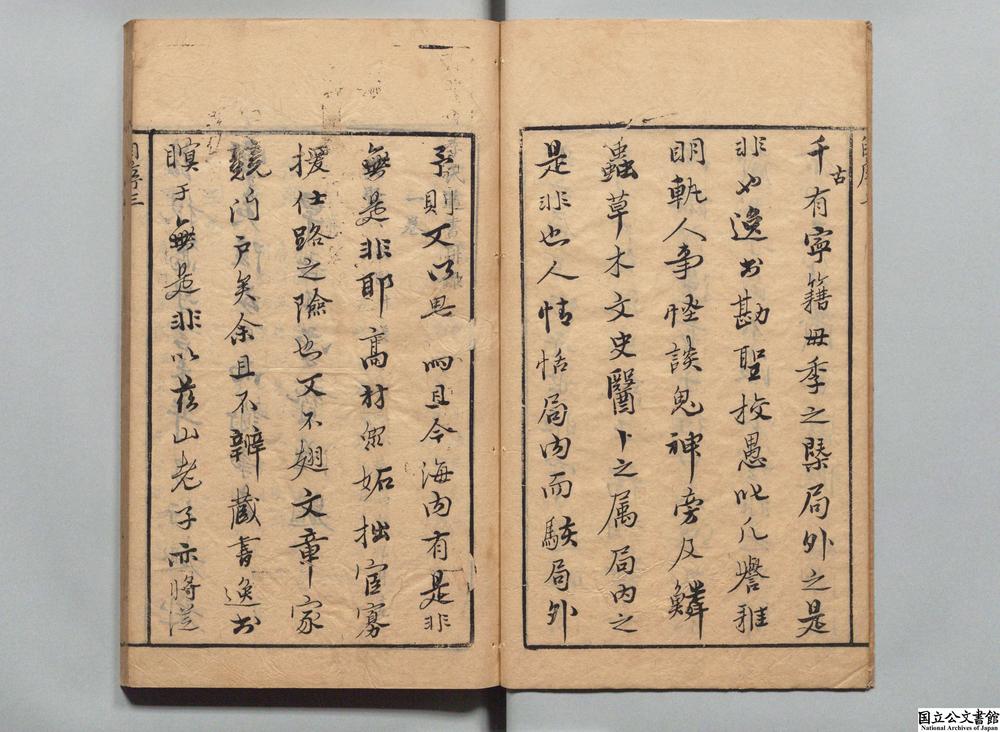 千古有寧籍毋季之槩局外之是
非也逸書勘聖挍愚叱凡譽雅
明軌人事怪談鬼神旁及鱗
蟲草木文史醫卜之属局内之
是非也人情恬局内而駭局外
予則又以思 而且今海内有是非
無是非耶高材智妬拙宦寡
援仕路之險也又不翅文章家
競門戸矣余且不辨蔵書逸書
瞑于無是非以茲山老子亦將従
自序三
国立公文書館
National Archives of Japan